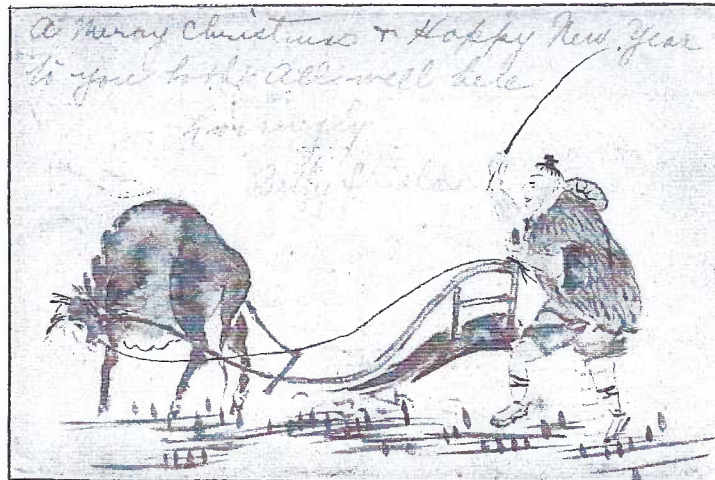 A Merry Christmas & Happy New Year
to you both All well here
Lovingly